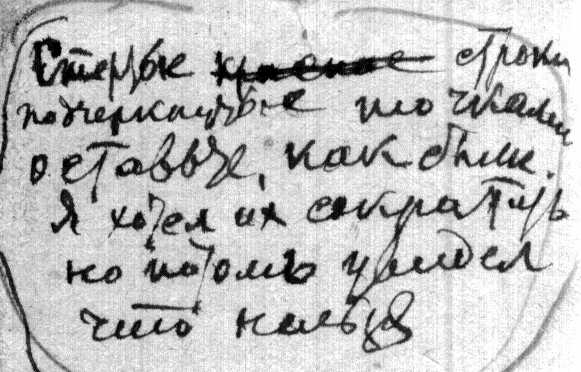 Стертые красные строки
подчеркнутые точками
оставьте, как были.
Я хотел их сократить
но потомъ увидел
что нельзя